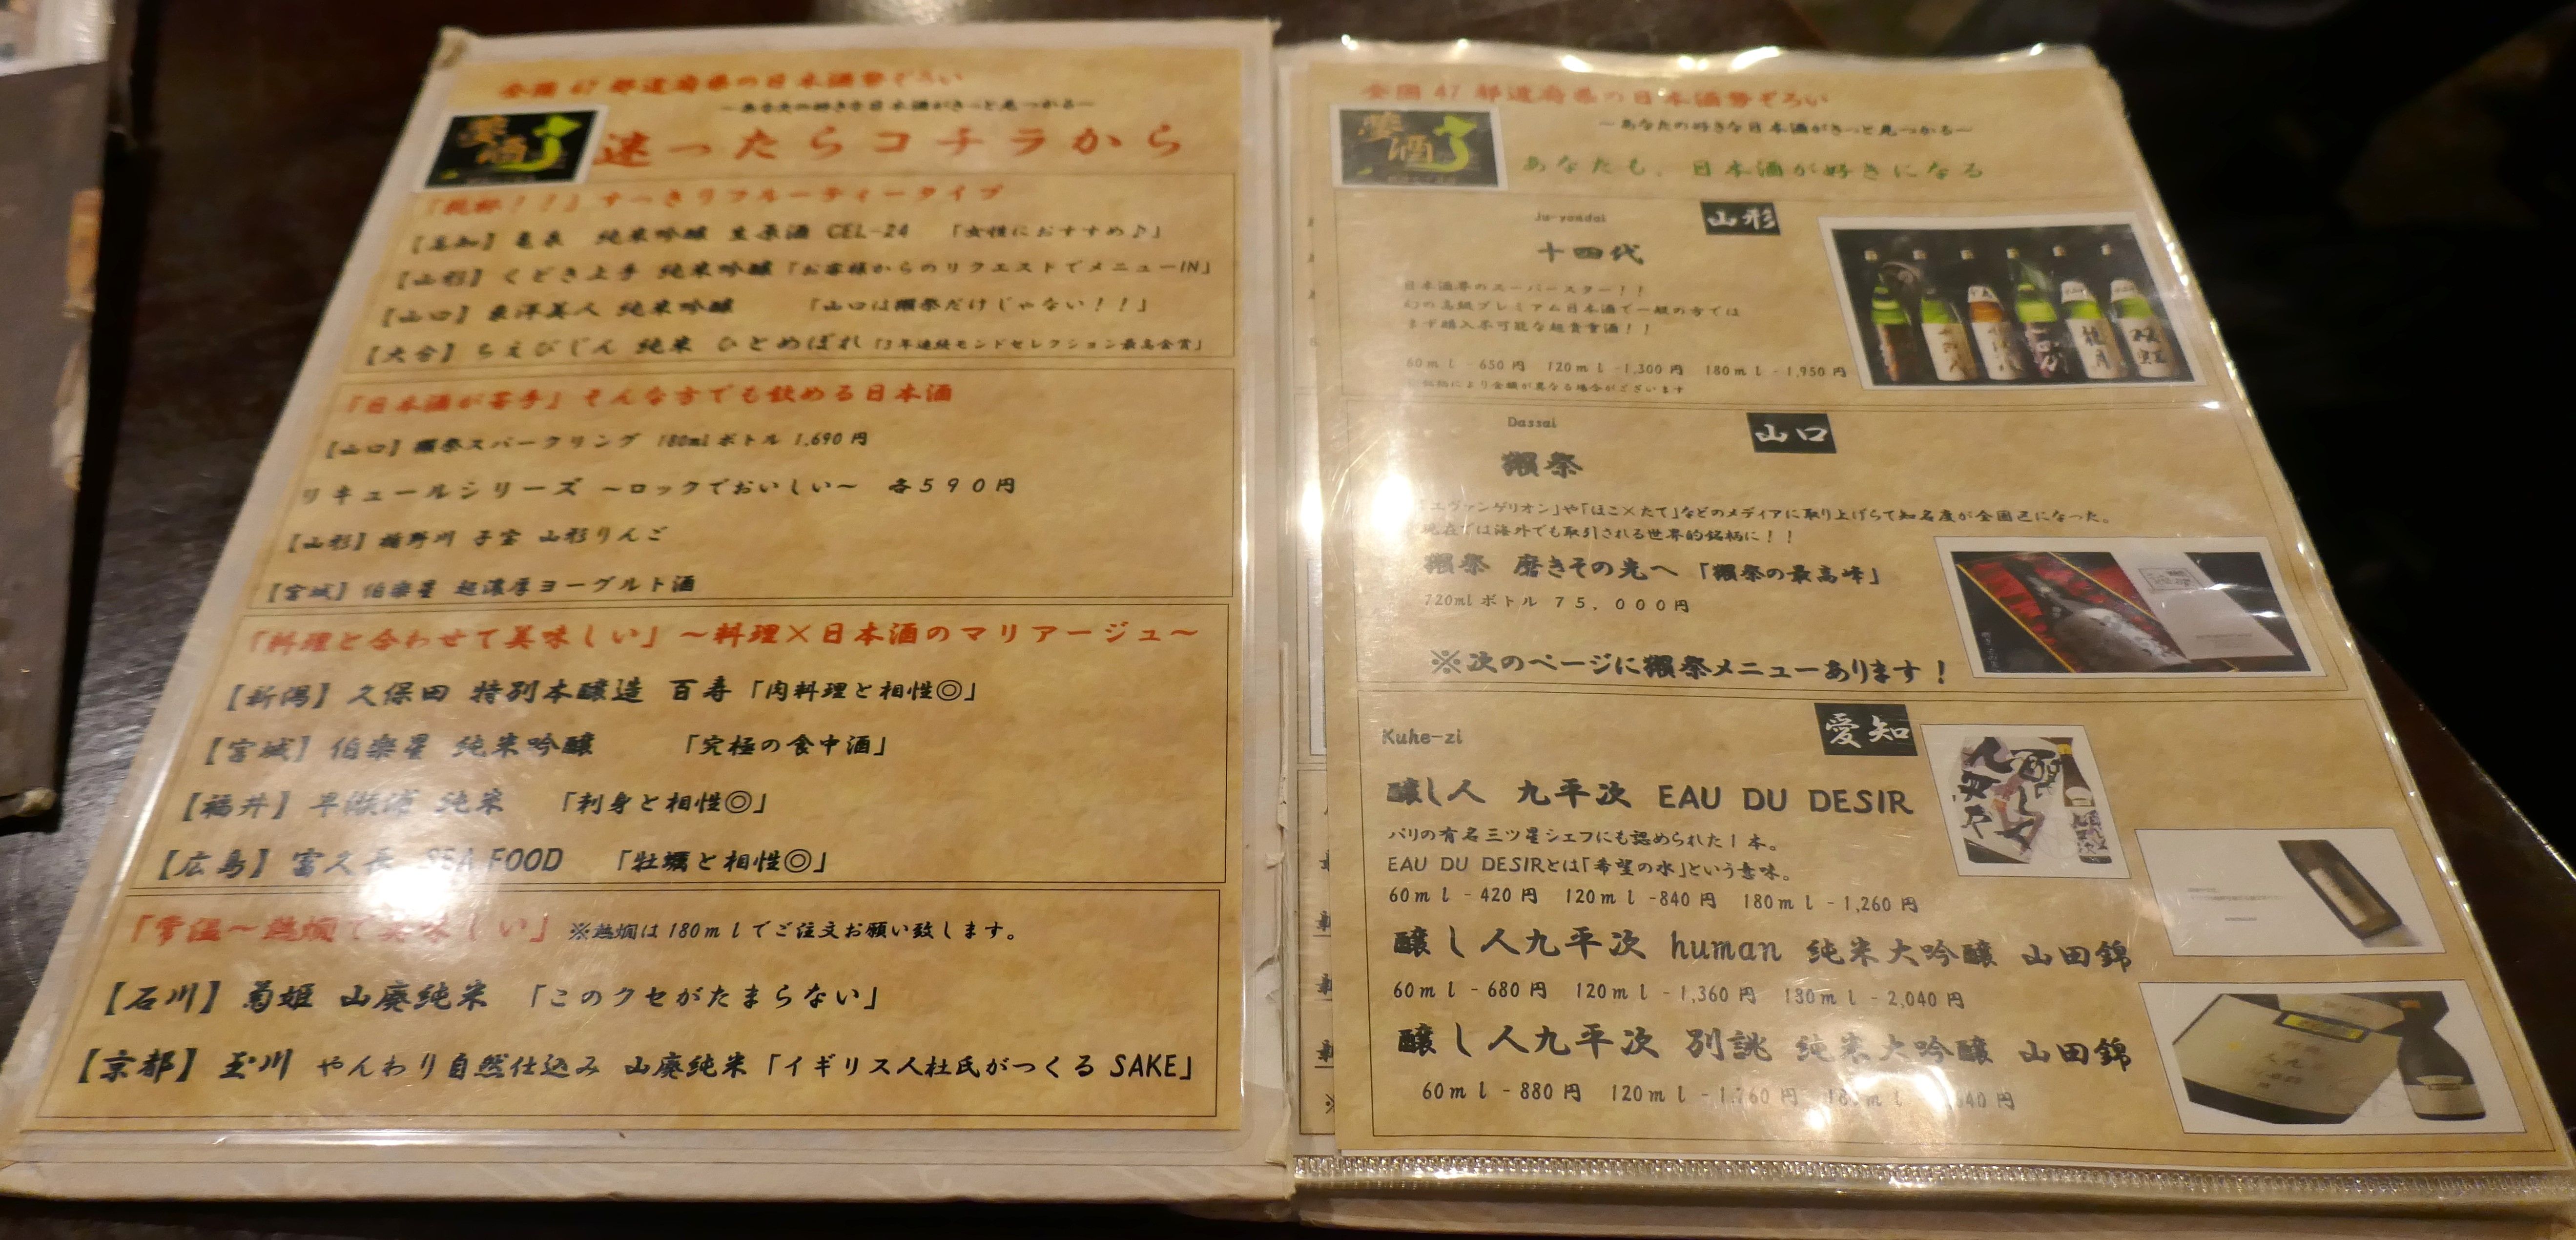 全国47都道府県の日本酒勢ぞろい
～あなたの好きな日本酒がきっと見つかる～
夢酒
迷ったらコチラから
「乾杯！！」すっきりフルーティータイプ
【高知】亀泉 純米吟醸 生原酒 CEL-24 「女性におすすめ♪」
【山形】くどき上手 純米吟醸「お客様からのリクエストでメニューIN」
【山口】東洋美人 純米吟醸 「山口は獺祭だけじゃない！！」
【大分】ちえびじん 純米 ひとめぼれ「3年連続モンドセレクション最高金賞」
「日本酒が苦手」そんな方でも飲める日本酒
【山口】獺祭スパークリング 180mlボトル 1,690円
リキュールシリーズ ～ロックでおいしい～ 各５９０円
【山形】楯野川 子宝 山形りんご
【宮城】伯楽星 超濃厚ヨーグルト酒
「料理と合わせて美味しい」～料理×日本酒のマリアージュ～
【新潟】久保田 特別本醸造 百寿「肉料理と相性◎」
【宮城】伯楽星 純米吟醸 「究極の食中酒」
【福井】早瀬浦 純米 「刺身と相性◎」
【広島】富久長 SEA FOOD 「牡蠣と相性◎」
「常温～熱燗で美味しい」※熱燗は180mlでご注文お願い致します。
【石川】菊姫 山廃純米 「このクセがたまらない」
【京都】玉川 やんわり自然仕込み 山廃純米「イギリス人杜氏がつくる SAKE」
全国47都道府県の日本酒勢ぞろい
～あなたの好きな日本酒がきっと見つかる～
夢酒
あなたも、日本酒が好きになる
Ju-yondai
山形
十四代
日本酒界のスーパースター！！
幻の高級プレミアム日本酒で一般の方では
まず購入不可能な超貴重酒！！
60ml -650円 120ml -1,300円 180ml -1,950円
※銘柄により金額が異なる場合がございます
Dassai
山口
獺祭
「エヴァンゲリオン」や「ほこ×たて」などのメディアに取り上げらて知名度が全国区になった。
現在では海外でも取引される世界的銘柄に！！
獺祭 磨きその先へ 「獺祭の最高峰」
720mlボトル ７５，０００円
※次のページに獺祭メニューあります！
Kuhe-zi
愛知
醸し人 九平次 EAU DU DESIR
パリの有名三ツ星シェフにも認められた1本。
EAU DU DESIRとは「希望の水」という意味。
60ml -420円 120ml -840円 180ml -1,260円
醸し人九平次 human 純米大吟醸 山田錦
60ml -680円 120ml -1,360円 180ml -2,040円
醸し人九平次 別誂 純米大吟醸 山田錦
60ml -880円 120ml